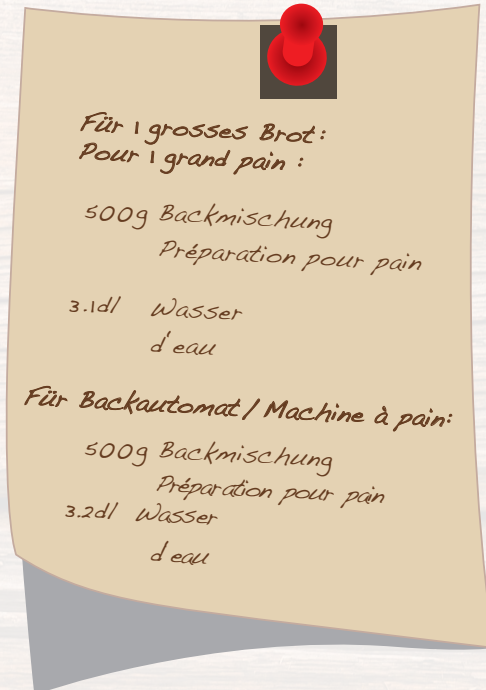 Für 1 grosses Brot:
Pour 1 grand pain :
500g Backmischung
Préparation pour pain
3.1dl Wasser
d'eau
Für Backautomat / Machine à pain:
500g Backmischung
Préparation pour pain
3.2dl Wasser
d'eau